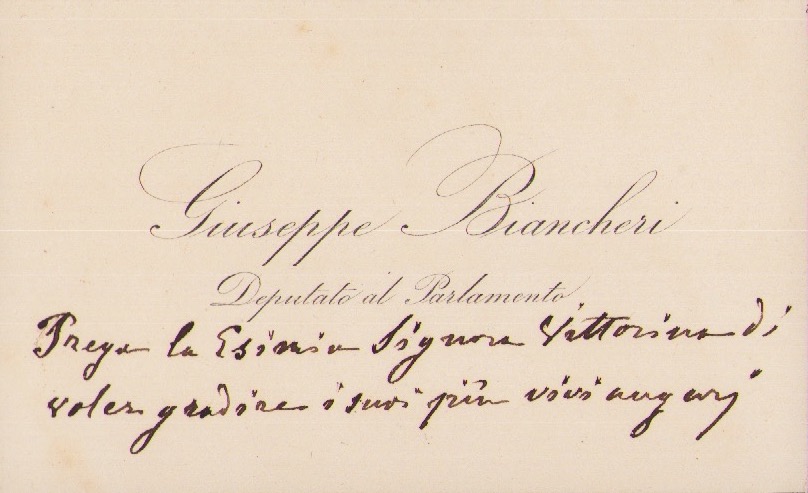 Giuseppe Biancheri
Deputato al Parlamento
Prega la Esimia Signora Vittorina di
voler gradire i suoi più vivi augurj